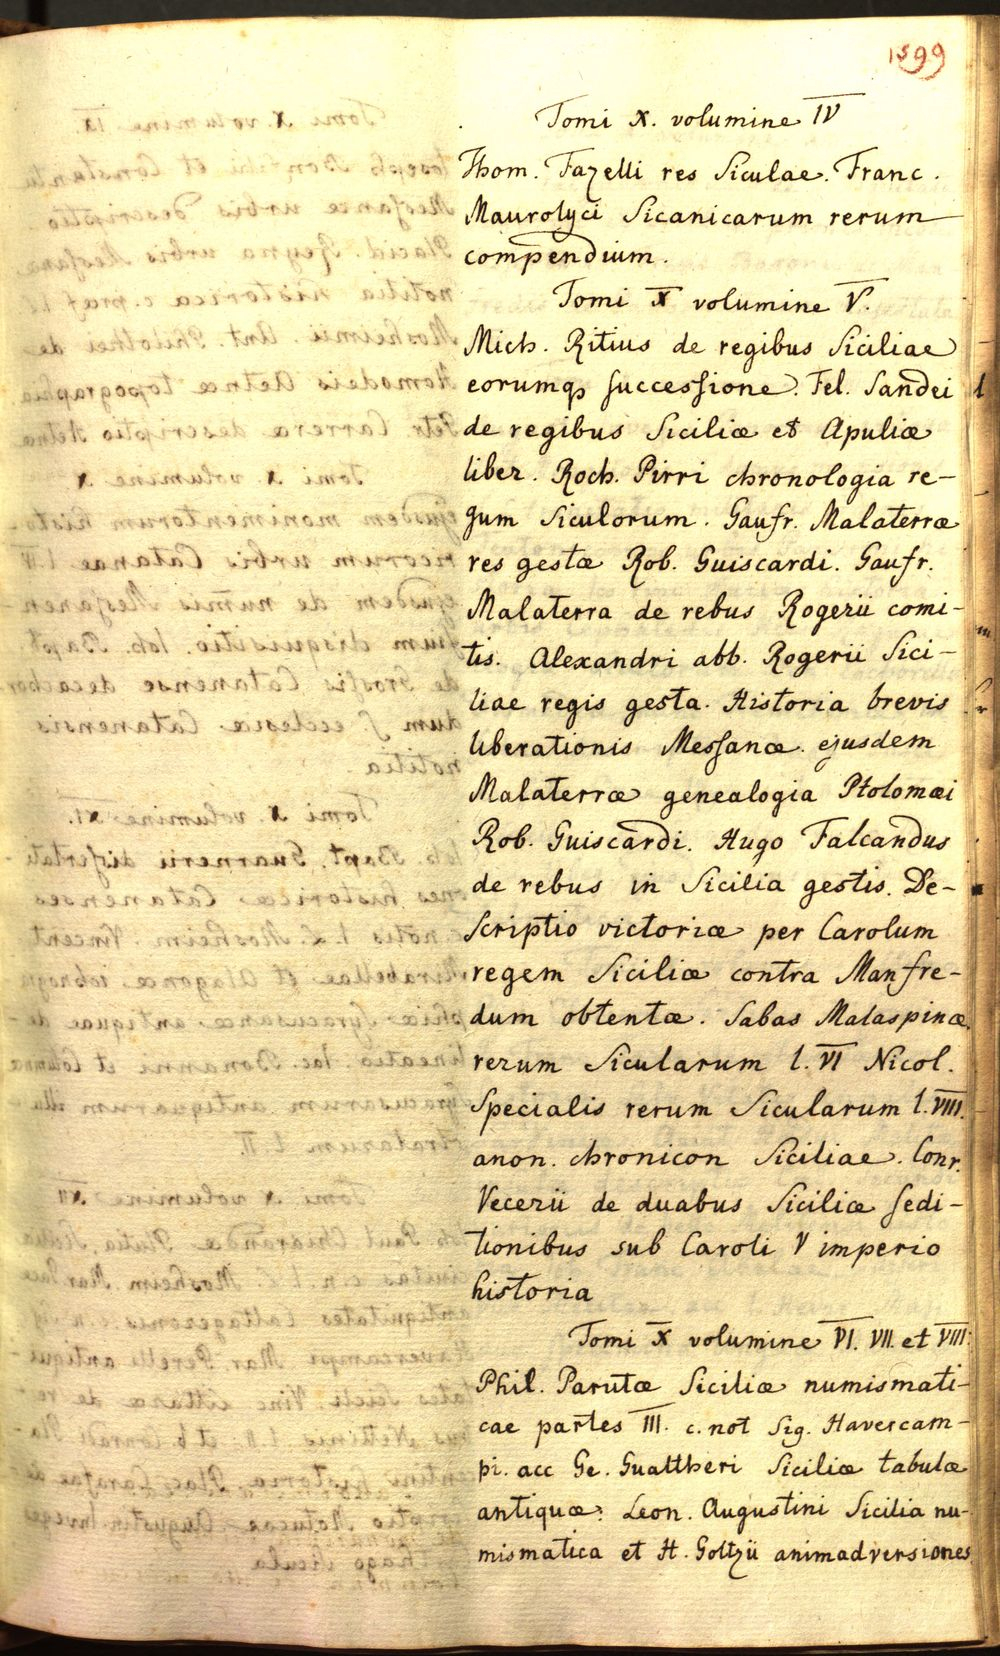 1599
Tomi X. volumine IV
Thom. Fazelli res Siculae. Franc.
Maurolyci Sicanicarum rerum
compendium.
Tomi X volumine V.
Mich. Ritius de regibus Siciliae
eorumq; successione. Fel. Sandei
de regibus Siciliæ et Apuliæ
liber. Roch. Pirri chronologia re-
gum Siculorum. Gaufr. Malaterræ
res gestæ Rob. Guiscardi. Gaufr.
Malaterra de rebus Rogerii comi-
tis. Alexandri abb. Rogerii Sici-
liae regis gesta. Historia brevis
liberationis Messanæ. ejusdem
Malaterræ genealogia Ptolomæi
Rob. Guiscardi. Hugo Falcandus
de rebus in Sicilia gestis. De-
scriptio victoriæ per Carolum
regem Siciliæ contra Manfre-
dum obtentæ. Sabas Malaspinæ
rerum Sicularum l. VI Nicol.
Specialis rerum Sicularum l. VIII.
anon. chronicon Siciliae. Conr.
Vecerii de duabus Siciliæ sedi-
tionibus sub Caroli V imperio
historia
Tomi X volumine VI. VII. et VIII.
Phil. Parutæ Siciliæ numismati-
cae partes III. c. not Sig. Havercam-
pi. acc Ge. Gualtheri Siciliæ tabulæ
antiquæ. Leon. Augustini Sicilia nu-
mismatica et H. Goltzii animadversiones